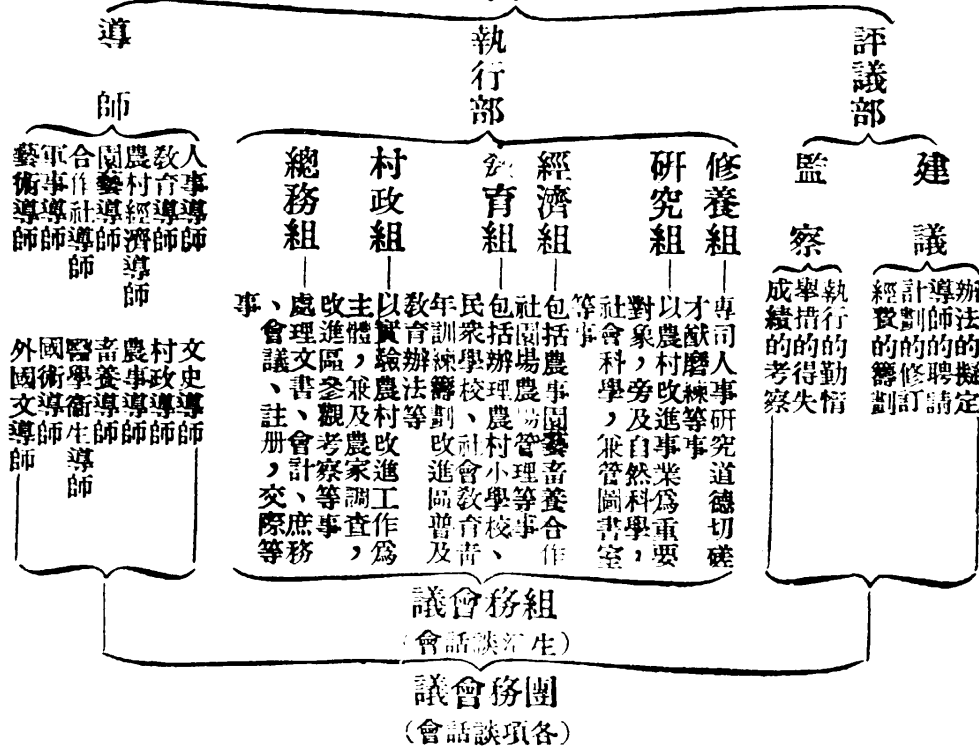 評議部
建議
辦法的擬定
導師的聘請
計劃的修訂
經費的籌劃
監察
執行的勤惰
舉措的得失
成績的考察
執行部
修養組
專司人事研究道德切磋
才猷磨練等事
研究組
以農村改進事業爲重要
對象,旁及自然科學,
社會科學,兼管圖書室
等事
經濟組
包括農事園藝畜養合作
社園場農場管理等事
育組
包括辦理農村小學校、
民衆學校、社會敎育靑
年訓練籌劃改進區普及
敎育辦法等
村政組
以實驗農村改進工作爲
主體,兼及農家調查,
改進區參觀考察等事
總務組
處理文書、會計、庶務
、會議、註册,交際等
事
導師
人事導師
敎育導師
農村經濟導師
園藝導師
合作社導師
軍事導師
藝術導師
文史導師
村政導師
農事導師
畜養導師
醫學衞生導師
國術導師
外國文導師
議會務組
(會話談 生)
議會務團
(會話談項各)